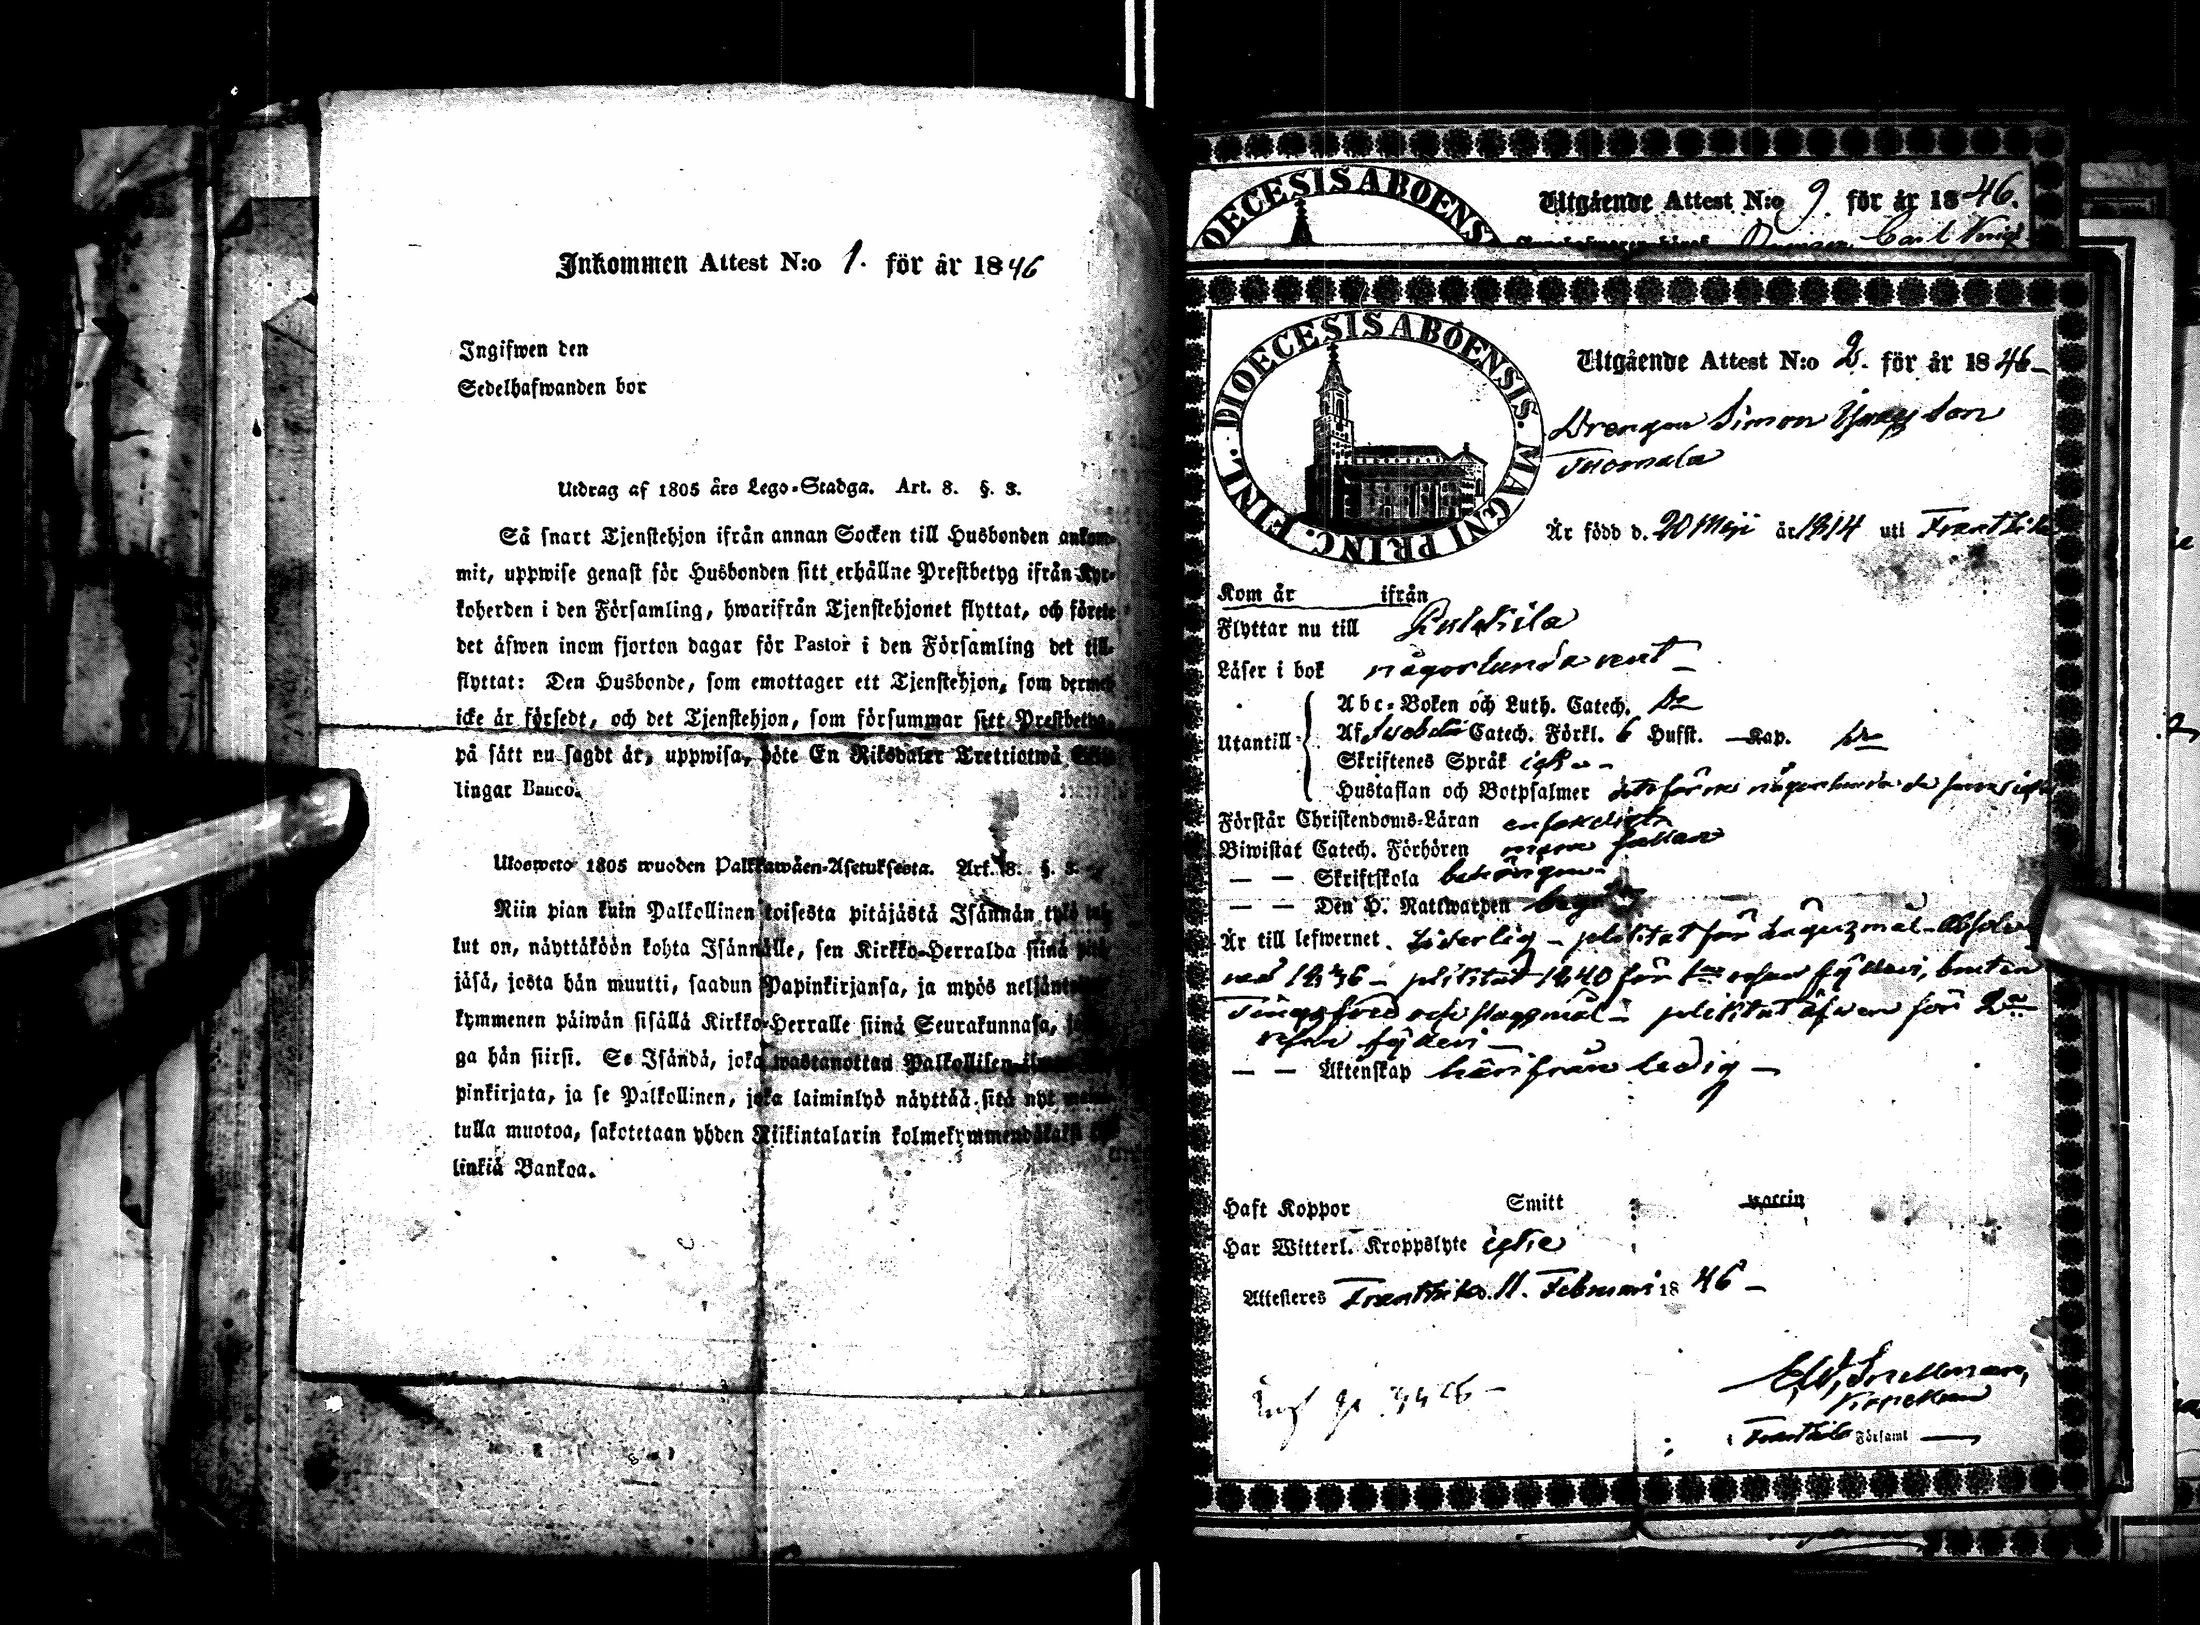 Inkommen Attest N:o 1. för år 1846
Ingifwen den
Sedelhafwanden bor
Utdrag af 1805 års Lego-Stadga. Art. 8. §. 3.
Så snart Tjenstehjon ifrån annan Socken till Husbonden ankom-
mit, uppwise genast för Husbonden sitt erhållne Prestbetyg ifrån Kyr-
koherden i den Församling, hwarifrån Tjenstehjonet flyttat, och förete
det äfwen inom fjorton dagar för Pastor i den Församling det till-
flyttat: Den Husbonde, som emottager ett Tjenstehjon, som dermed
icke är försedt, och det Tjenstehjon, som försummar sitt Prestbetyg,
på sätt nu sagdt är, uppwisa, böte En Riksdaler Trettiotwå Skil-
lingar Banco.
Ulosweto 1805 wuoden Palkkawäen-Asetuksesta. Art. 8. §. 3.
Niin pian kuin Palkollinen toisesta pitäjästä Isännän tykö tul-
lut on, näyttäköön kohta Isännälle, sen Kirkko-Herralda siinä pitä-
jäsä, josta hän muutti, saadun Papinkirjansa, ja myös neljän
kymmenen päiwän sisällä Kirkko-Herralle siinä Seurakunnasa,
ga hän siirsi. Se Isändä, joka wastanottaa Palkollisen ilman
pinkirjata, ja se Palkollinen, joka laiminlyö näyttää sitä nyt
tulla muotoa, sakotetaan yhden Riikintalarin kolmekymmendäkaksi
linkiä Bankoa.
DIOECESIS ABOENS
Utgående Attest N:o 9. för år 1846.
Carl
DIOECESIS ABOENSIS. MAGNI PRINC. FINL.
Utgående Attest N:o 2. för år 1846
Drengen Simon
Tuomala
Är född d. 20 Maji år 1814 uti Frantsila
Kom år ifrån
Flyttar nu till Pulkkila
Läser i bok någorlunda rent
Utantill
Abc-Boken och Luth. Catech.
Af Catech. Förkl. 6 Hufst. Kap.
Skriftenes Språk icke
Hustaflan och Botpsalmer
Förstår Christendoms-Läran enfaldigt
Biwistat Catech. Förhören
— — Skriftskola behörigen
— — Den H. Nattwarden
Är till lefwernet liderlig - pliktat för
1836 - pliktat 1840 för 1sta resan fylleri,
och - pliktat äfwen för 2dra
resan fylleri
— — Äktenskap härifrån ledig
Haft Koppor Smitt vaccin
Har Witterl. Kroppslyte icke
Attesteres Frantsila 11. Februari 1846
Snellman,
Frantsila Församl